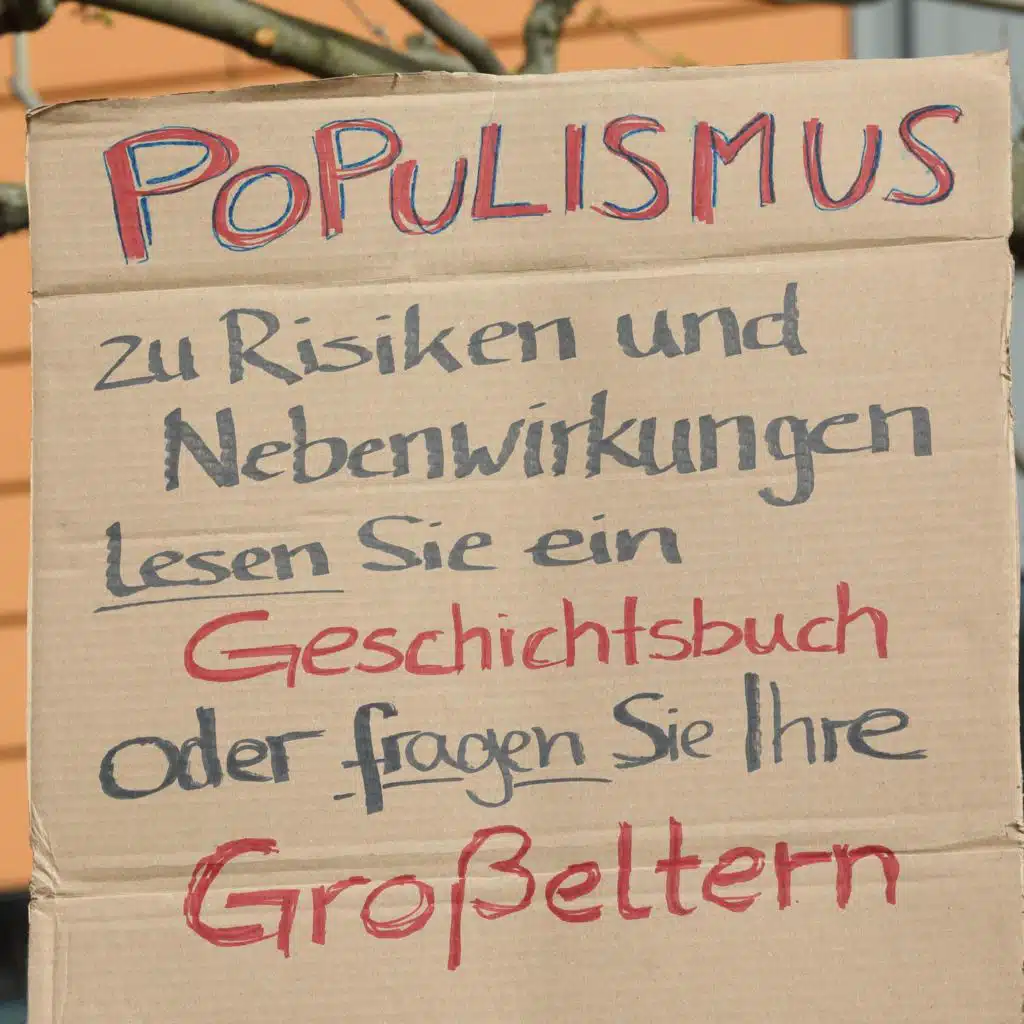 POPULISMUS
zu Risiken und
Nebenwirkungen
lesen Sie ein
Geschichtsbuch
oder fragen Sie Ihre
Großeltern